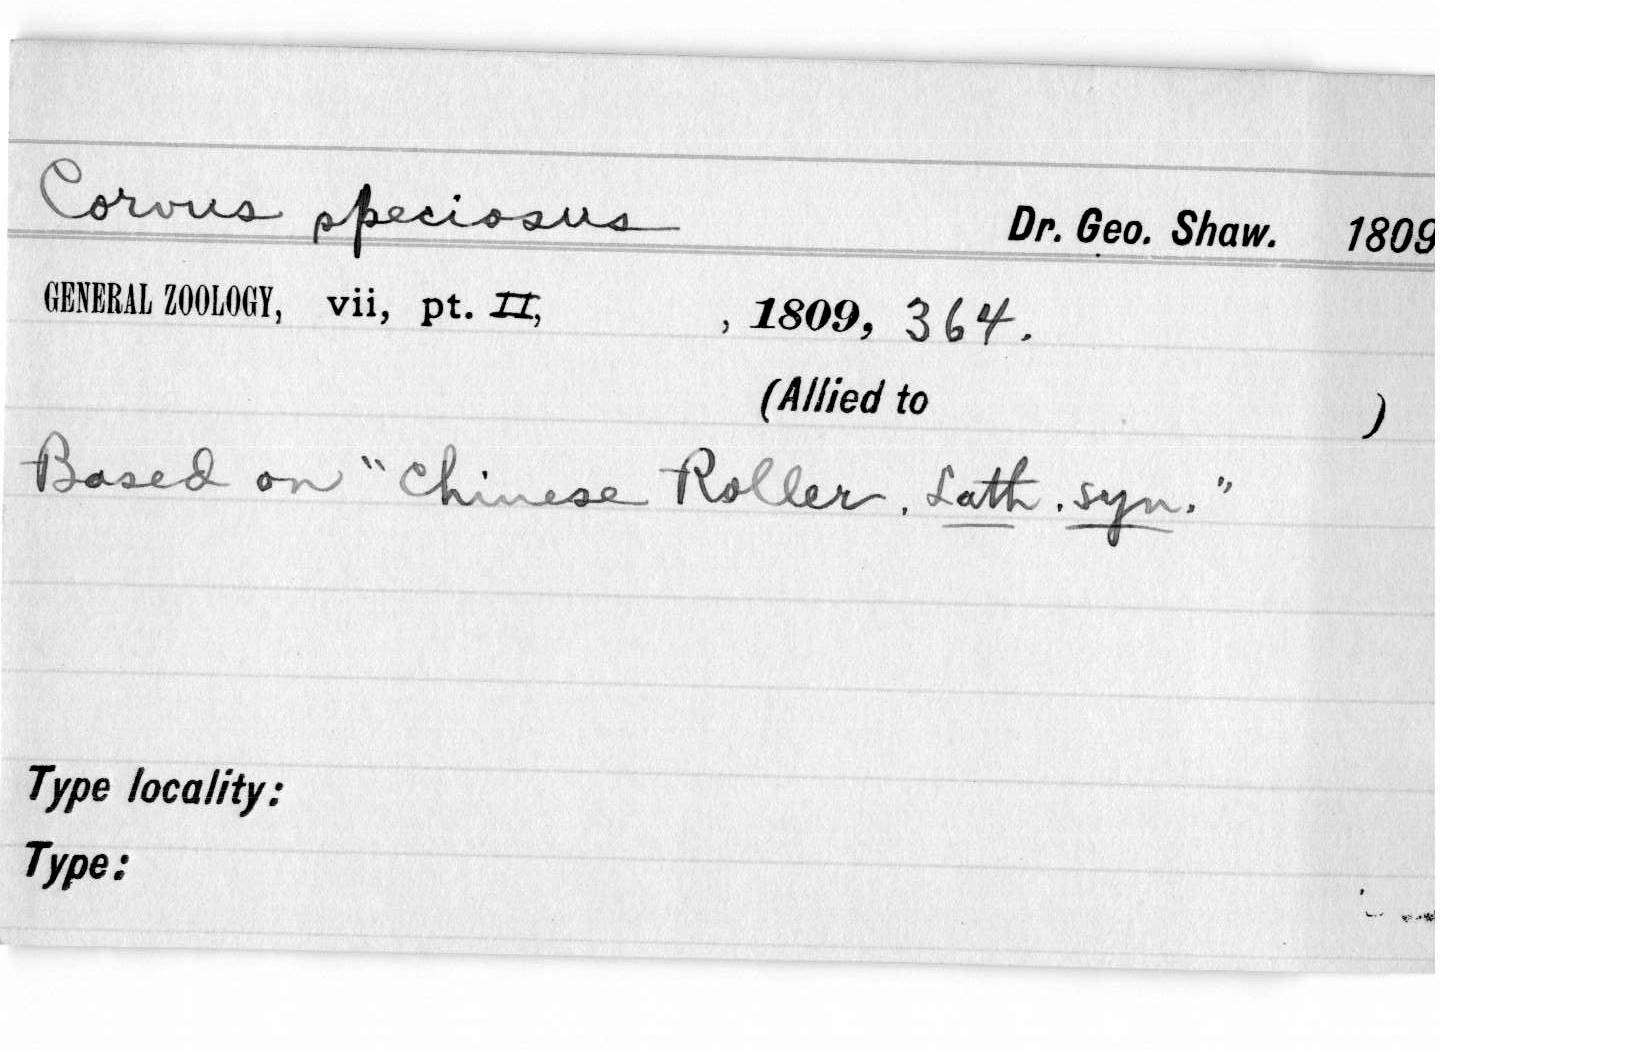 Corvus speciosus Dr. Geo. Shaw. 1809
GENERAL ZOOLOGY, vii, pt. II, , 1809, 364.
(Allied to )
Based on "Chinese Roller, Lath. syn."
Type locality:
Type: